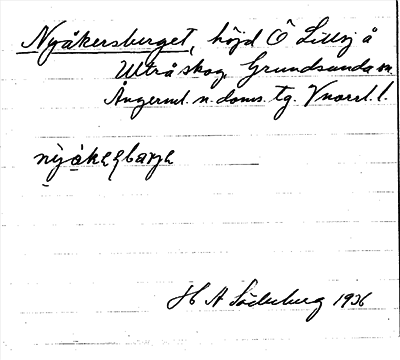 Nyåkersberget, höjd Ö Lillsj å
Ultrå skog Grundsunda sn.
Ångerml. n. doms. tg. Vnorrl. l.
H A Söderberg 1936